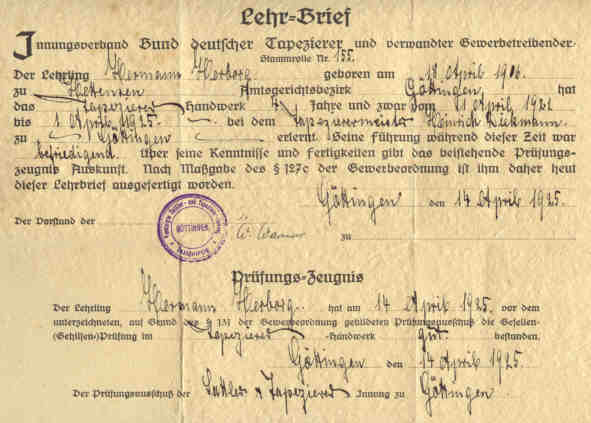 Lehr=Brief
Innungsverband Bund deutscher Tapezierer und verwandter Gewerbetreibender.
Stammrolle Nr. 155.
Der Lehrling Hermann Herborg geboren am 18 April 1906
zu Amtsgerichtsbezirk Göttingen hat
das Tapezierer Handwerk 4 Jahre und zwar vom 1 April 1921
bis 1 April 1925 bei dem Tapezierermeister Heinrich Diekmann
zu Göttingen erlernt. Seine Führung während dieser Zeit war
befriedigend. Über seine Kenntnisse und Fertigkeiten gibt das beistehende Prüfungs=
zeugnis Auskunft. Nach Maßgabe des § 127c der Gewerbeordnung ist ihm daher heut
dieser Lehrbrief ausgefertigt worden.
Göttingen den 14 April 1925.
Der Vorstand der zu
GÖTTINGEN
Prüfungs=Zeugnis
Der Lehrling Hermann Herborg hat am 14 April 1925 vor dem
unterzeichneten, auf Grund des § 131 der Gewerbeordnung gebildeten Prüfungsausschuß die Gesellen=
(Gehilfen=)Prüfung im Tapezierer =Handwerk gut bestanden.
Göttingen den 14 April 1925.
Der Prüfungsausschuß der Sattler & Tapezierer Innung zu Göttingen.